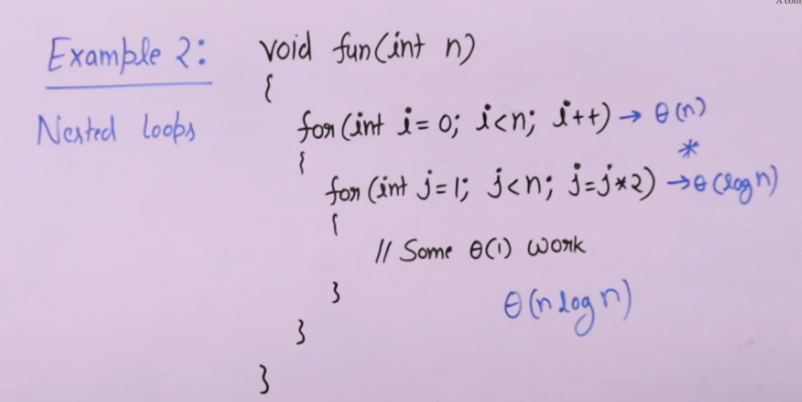 Example 2:
Nested loops
void fun(int n)
{
for(int i=0; i<n; i++) → θ(n)
*
{
for(int j=1; j<n; j=j*2) → θ(log n)
{
// Some θ(1) work
}
θ(n log n)
}
}